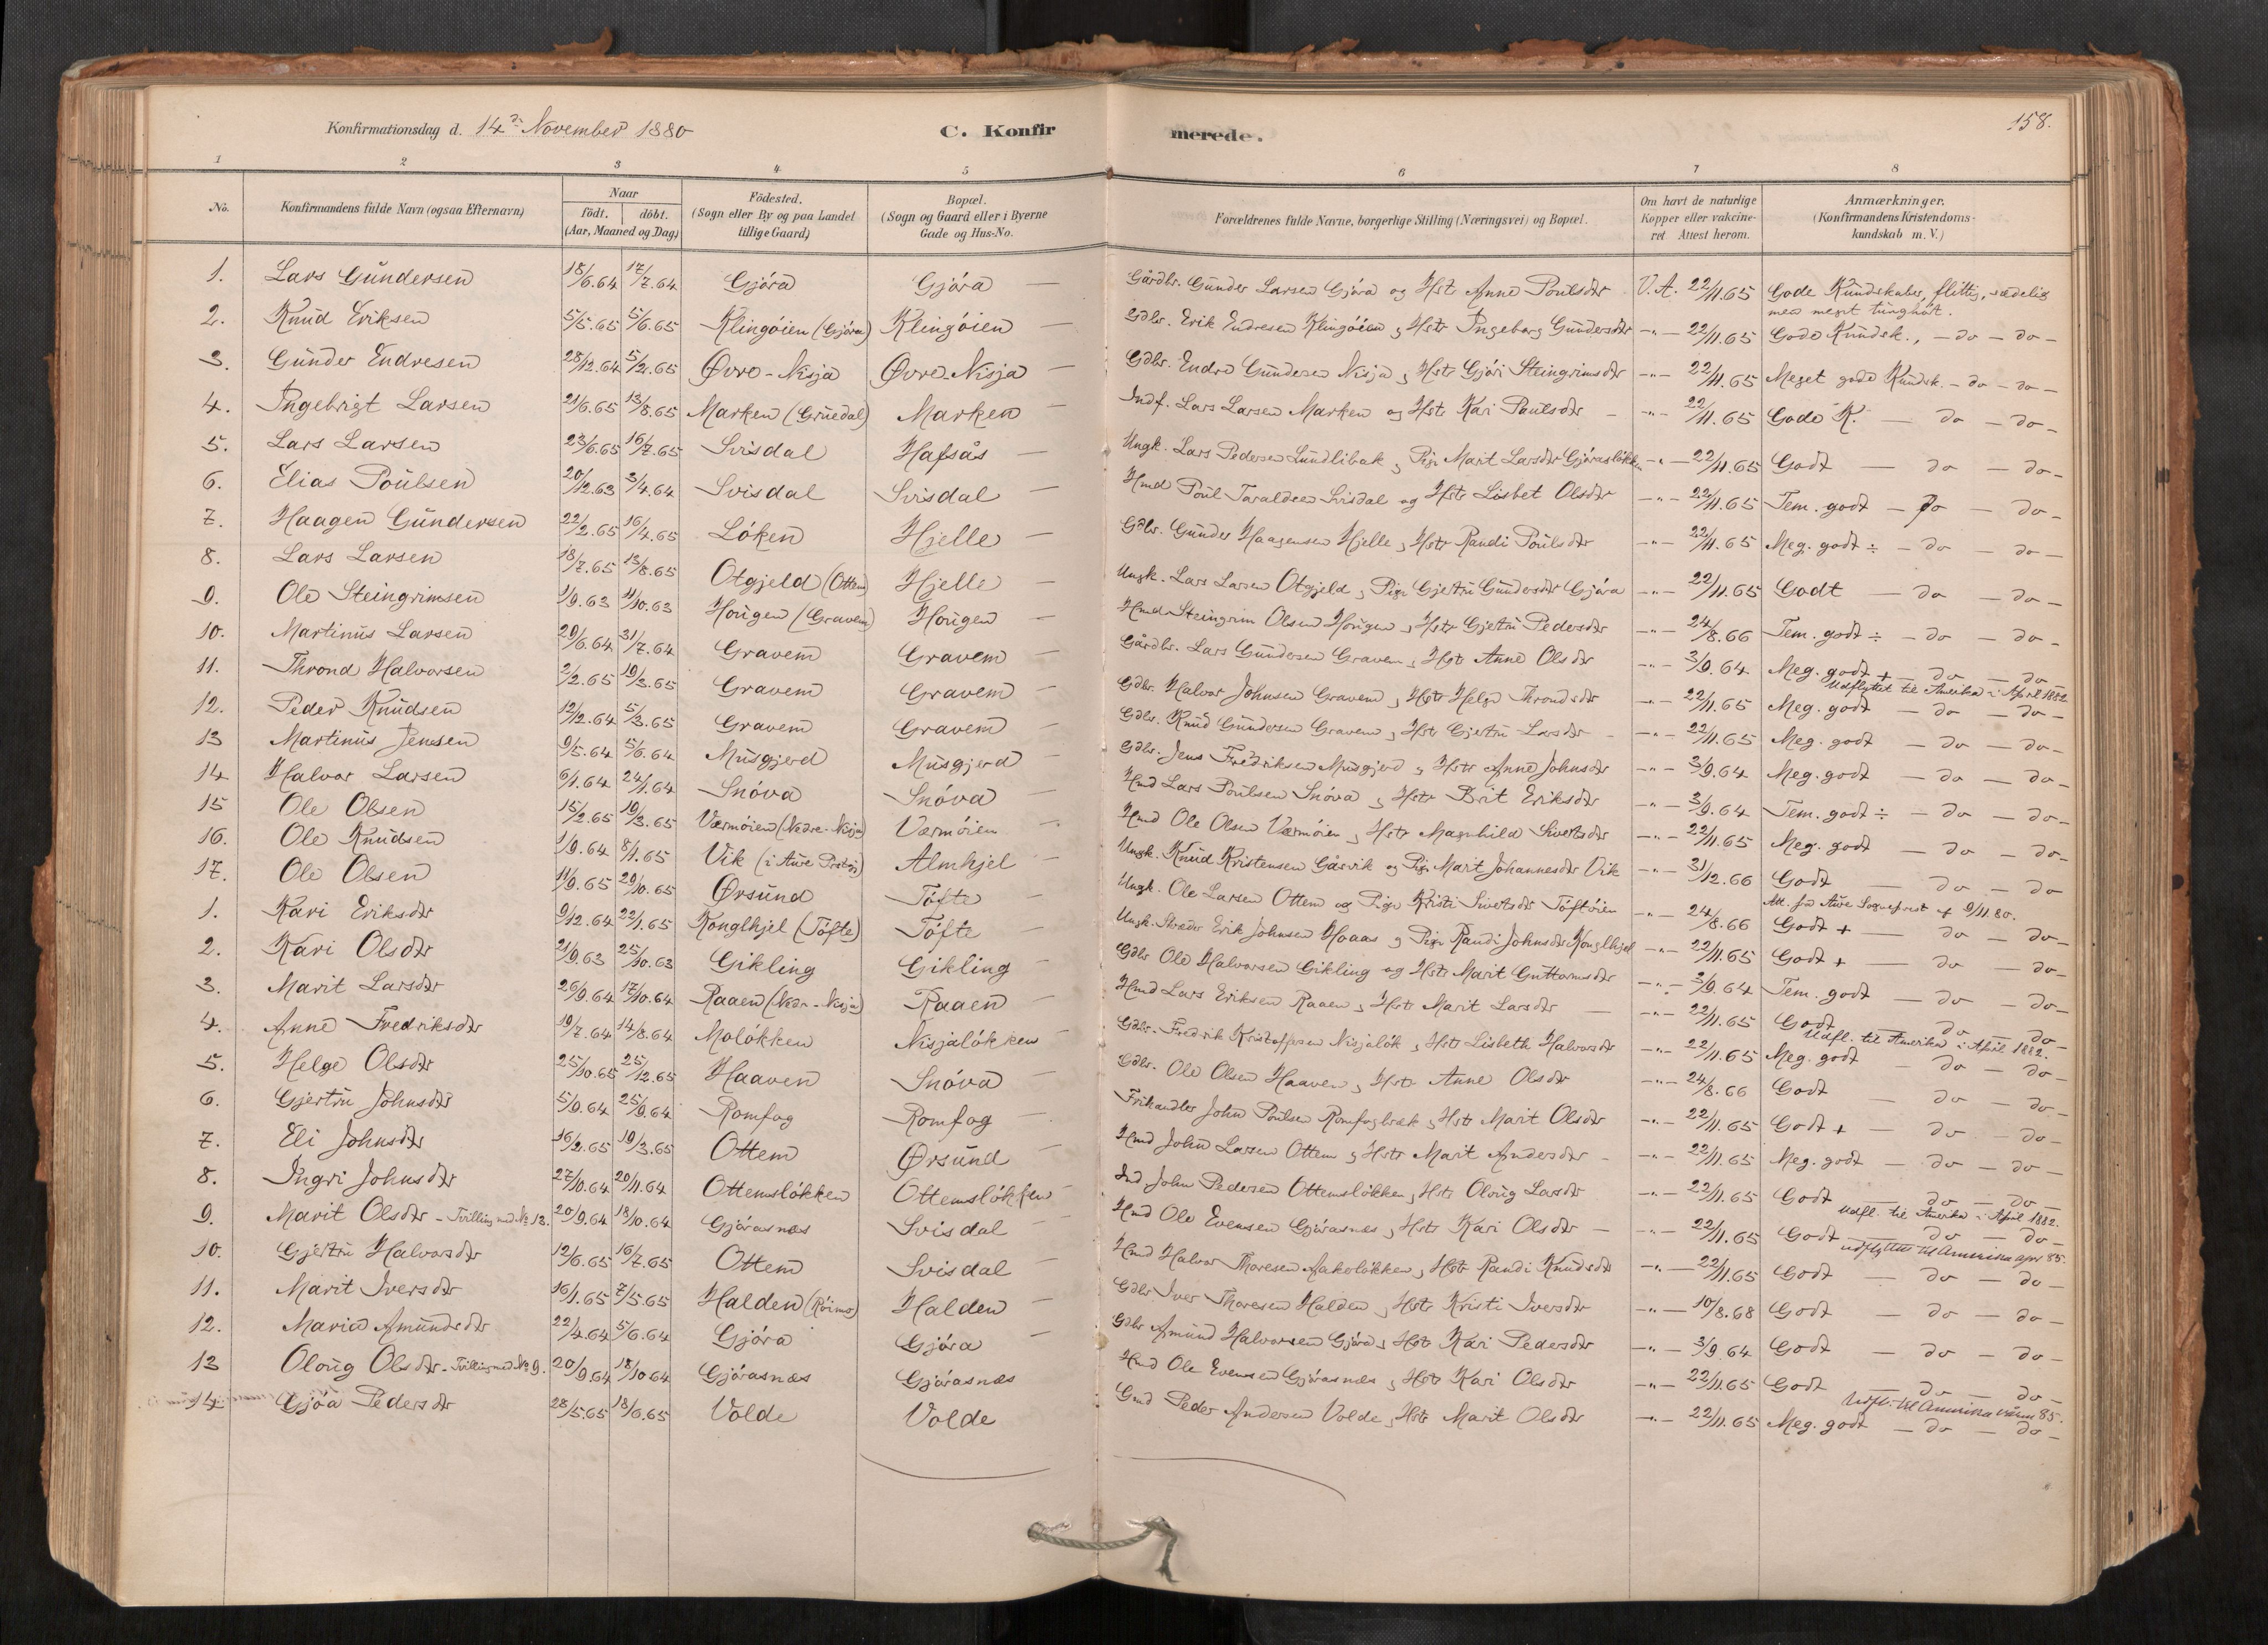 Konfirmationsdag d. 14de November 1880
C. Konfirmerede.
158.
1 2 3 4 5 6 7 8
No.
Konfirmandens fulde Navn (ogsaa Efternavn)
Naar
födt. döbt.
(Aar, Maaned og Dag)
Födested.
(Sogn eller By og paa Landet
tillige Gaard)
Bopæl.
(Sogn og Gaard eller i Byerne
Gade og Hus-No.
Forældrenes fulde Navne, borgerlige Stilling (Næringsvei) og Bopæl.
Om havt de naturlige
Kopper eller vakcine-
ret Attest herom.
Anmærkninger.
(Konfirmandens Kristendoms-
kundskab m. V.)
1. Lars Gundersen 18/6.64 17/7.64 Gjóra Gjóra — Gårdbr. Gunder Larsen Gjóra og Hst Anne Poulsdtr V. A. 22/11.65 Gode Kundskaber, flittig, sædelig
men meget tunghørt.
2. Knud Eriksen 5/5.65 5/6.65 Klingóien (Gjóra) Klingóien — Gdbr. Erik Endresen Klingóien og Hstr Ingeborg Gundersdtr -"- 22/11.65 Gode Kundsk., - do - do -
3. Gunder Endresen 28/12.64 5/2.65 Øvre-Nisja Øvre-Nisja — Gdbr. Endre Gundersen Nisja og Hstr Gjóri Steingrimsdtr -"- 22/11.65 Meget gode Kundsk. - do - do -
4. Ingebrigt Larsen 21/6.65 13/8.65 Marken (Gruedal) Marken — Indf. Lars Larsen Marken og Hstr Kari Paulsdtr - -"- 22/11.65 Gode K. - do - do -
5. Lars Larsen 23/6.65 16/7.65 Svisdal Hafsås — Ungk. Lars Pedersen Lundlibak og Pige Marit Larsdtr Gjóraslókken -"- 22/11.65 Godt - do - do -
6. Elias Poulsen 20/12.63 3/4.64 Svisdal Svisdal — Hmd Poul Taraldsen Svisdal og Hstr Lisbet Olsdtr -"- 22/11.65 Tem. godt - do - do -
7. Haagen Gundersen 22/2.65 16/4.65 Lóken Hjelle — Gdbr. Gunder Haagensen Hjelle og Hstr Randi Poulsdtr -"- 22/11.65 Meg. godt ÷ - do - do -
8. Lars Larsen 13/7.65 13/8.65 Otgjeld (Ottem) Hjelle — Ungk. Lars Larsen Otgjeld og Pige Gjertru Gundersdtr Gjóra -"- 22/11.65 Godt - do - do -
9. Ole Steingrimsen 1/9.63 11/10.63 Hougen (Gravem) Hougen — Hmd Steingrim Olsen Hougen og Hstr Gjertru Pedersdtr -"- 24/8.66 Tem. godt ÷ - do - do -
10. Martinus Larsen 29/6.64 31/7.64 Gravem Gravem — Gårdbr. Lars Gundersen Gravem og Hstr Anne Olsdtr -"- 3/9.64 Meg. godt + - do - do -
Udflyttet til Amerika i April 1882.
11. Thrond Halvorsen 2/2.65 19/3.65 Gravem Gravem — Gdbr. Halvor Johnsen Gravem og Hstr Helge Throndsdtr -"- 22/11.65 Meg. godt - do - do -
12. Peder Knudsen 12/12.64 5/3.65 Gravem Gravem — Gdbr. Knud Gundersen Gravem og Hstr Gjertru Larsdtr - -"- 22/11.65 Meg. godt - do - do -
13 Martinus Jensen 9/5.64 5/6.64 Musgjerd Musgjerd — Gdbr. Jens Fredriksen Musgjerd og Hstr Anne Johnsdtr -"- 3/9.64 Meg. godt - do - do -
14 Halvor Larsen 6/1.64 24/1.64 Snóva Snóva — Hmd Lars Poulsen Snóva og Hstr Brit Eriksdtr -"- 3/9.64 Tem. godt ÷ - do - do -
15 Ole Olsen 15/2.65 19/3.65 Værmóien (Nedre-Nisja) Værmóien — Hmd Ole Olsen Værmóien og Hstr Magnhild Sivertsdtr -"- 22/11.65 Meg. godt - do - do -
16. Ole Knudsen 1/9.64 8/1.65 Vik (i Aure Prstgj) Almhjel — Ungk. Knud Kristensen Gåsvik og Pige Marit Johannesdtr Vik -"- 31/12.66 Godt - do - do
Att. fra Aure Sogneprest af 9/11.80.
17. Ole Olsen 11/9.65 29/10.65 Ørsund Tófte — Ungk. Ole Larsen Ottem og Pige Kristi Sivertsdtr Tóftóien -"- 24/8.66 Godt + - do - do -
1. Kari Eriksdtr 9/12.64 22/1.65 Konglhjel (Tófte) Tófte — Ungk. Skræder Erik Johnsen Hoaas og Pige Randi Johnsdtr Konglhjel -"- 22/11.65 Godt + - do - do -
2. Kari Olsdtr 21/9.63 25/10.63 Gikling Gikling — Gdbr Ole Halvorsen Gikling og Hstr Marit Guttormsdtr -"- 3/9.64 Tem. godt - do - do -
3. Marit Larsdtr 26/9.64 17/10.64 Raaen (Nedr-Nisja) Raaen — Hmd Lars Eriksen Raaen og Hstr Marit Larsdtr - -"- 22/11.65 Godt - do - do -
Udfl. til Amerika i April 1882.
4. Anne Fredriksdtr 19/7.64 14/8.64 Molókken Nisjalókken Gdbr. Fredrik Kristoffersen Nisjalók og Hstr Lisbeth Halvorsdtr -"- 22/11.65 Meg. godt - do - do -
5. Helge Olsdtr 25/10.65 25/12.65 Haaven Snóva — Gdbr. Ole Olsen Haaven og Hstr Anne Olsdtr -"- 24/8.66 Godt - do - do -
6. Gjertru Johnsdtr 5/9.64 25/9.64 Romfog Romfog — Frihandler John Poulsen Romfogbæk og Hstr Marit Olsdtr -"- 22/11.65 Godt + - do - do -
7. Eli Johnsdtr 16/2.65 19/3.65 Ottem Ørsund — Hmd John Larsen Ottem og Hstr Marit Andersdtr - -"- 22/11.65 Meg. godt - do - do -
8. Ingri Johnsdtr 27/10.64 20/11.64 Ottemslókken Ottemslókken — Ind John Pedersen Ottemslókken og Hstr Oloug Larsdtr -"- 22/11.65 Godt - do - do -
Udfl. til Amerika i April 1882.
9. Marit Olsdtr - Tvilling med No 13. 20/9.64 18/10.64 Gjórasnæs Svisdal — Hmd Ole Evensen Gjórasnæs og Hstr Kari Olsdtr - -"- 22/11.65 Godt - do - do -
udflyttet til Amerika apr 85.
10. Gjertru Halvorsdtr 12/6.65 16/7.65 Ottem Svisdal — Hmd Halvor Thoresen Aakerlókken og Hstr Randi Knudsdtr -"- 22/11.65 Godt - do - do -
11. Marit Iversdtr 16/1.65 7/5.65 Halden (Róimo) Halden — Gdbr Iver Thoresen Halden og Hstr Kristi Iversdtr -"- 10/8.68 Godt - do - do -
12. Maria Amundsdtr 22/4.64 5/6.64 Gjóra Gjóra — Gdbr Amund Halvorsen Gjóra og Hstr Kari Pedersdtr -"- 3/9.64 Godt - do - do -
13 Oloug Olsdtr - Tvilling med No 9. 20/9.64 18/10.64 Gjórasnæs Gjórasnæs Hmd Ole Evensen Gjórasnæs og Hstr Kari Olsdtr -"- 22/11.65 Godt - do - do -
Udfl. til Amerika våren 85.
14. Gjóa Pedersdtr 28/5.65 18/6.65 Volde Volde Gmd Peder Andersen Volde og Hstr Marit Olsdtr -"- 22/11.65 Meg. godt - do - do -